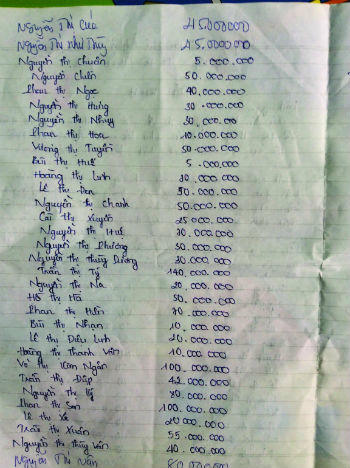 Nguyễn Thị Cúc 45000000
Nguyễn Thị Như Thùy 45.000000
Nguyễn thị Chuốn 5.000.000
Nguyễn Chiến 50.000.000
Phan thị Ngọc 40.000.000
Nguyễn thị Hưng 30.000.000
Nguyễn thị Nhung 50.000.000
Phan thị Hoa 10.000.000
Vương thị Tuyến 50.000.000
Bùi thị Huế 5.000.000
Hoàng thị Linh
Lê thị 50.000.000
Nguyễn thị Chanh 50.000.000
Cai thị Xuyến 25000.000
Nguyễn thị Huế 30.000.000
Nguyễn thị Phương 50.000.000
Nguyễn thị thùy Dương 30.000.000
Trần thị Tý 140.000.000
Nguyễn thị Na 20.000.000
Hồ thị Hà 50.000.000
Phan thị Hiền 70.000.000
Bùi thị Nhạn 10.000.000
Lê thị Diệu Linh 20.000.000
Hoàng thị Thanh Vân 10.000.000
Võ thị Kim Ngân 100.000.000
Trần thị Đáp 42.000.000
Nguyễn thị Kỷ 80.000.000
Phan thị Sen 100.000.000
Lê thị Xê 20000.000
Trần thị Xuân 55.000.000
Nguyễn thị thùy Vân 40.000.000
Nguyễn Thị Vân 80.000000